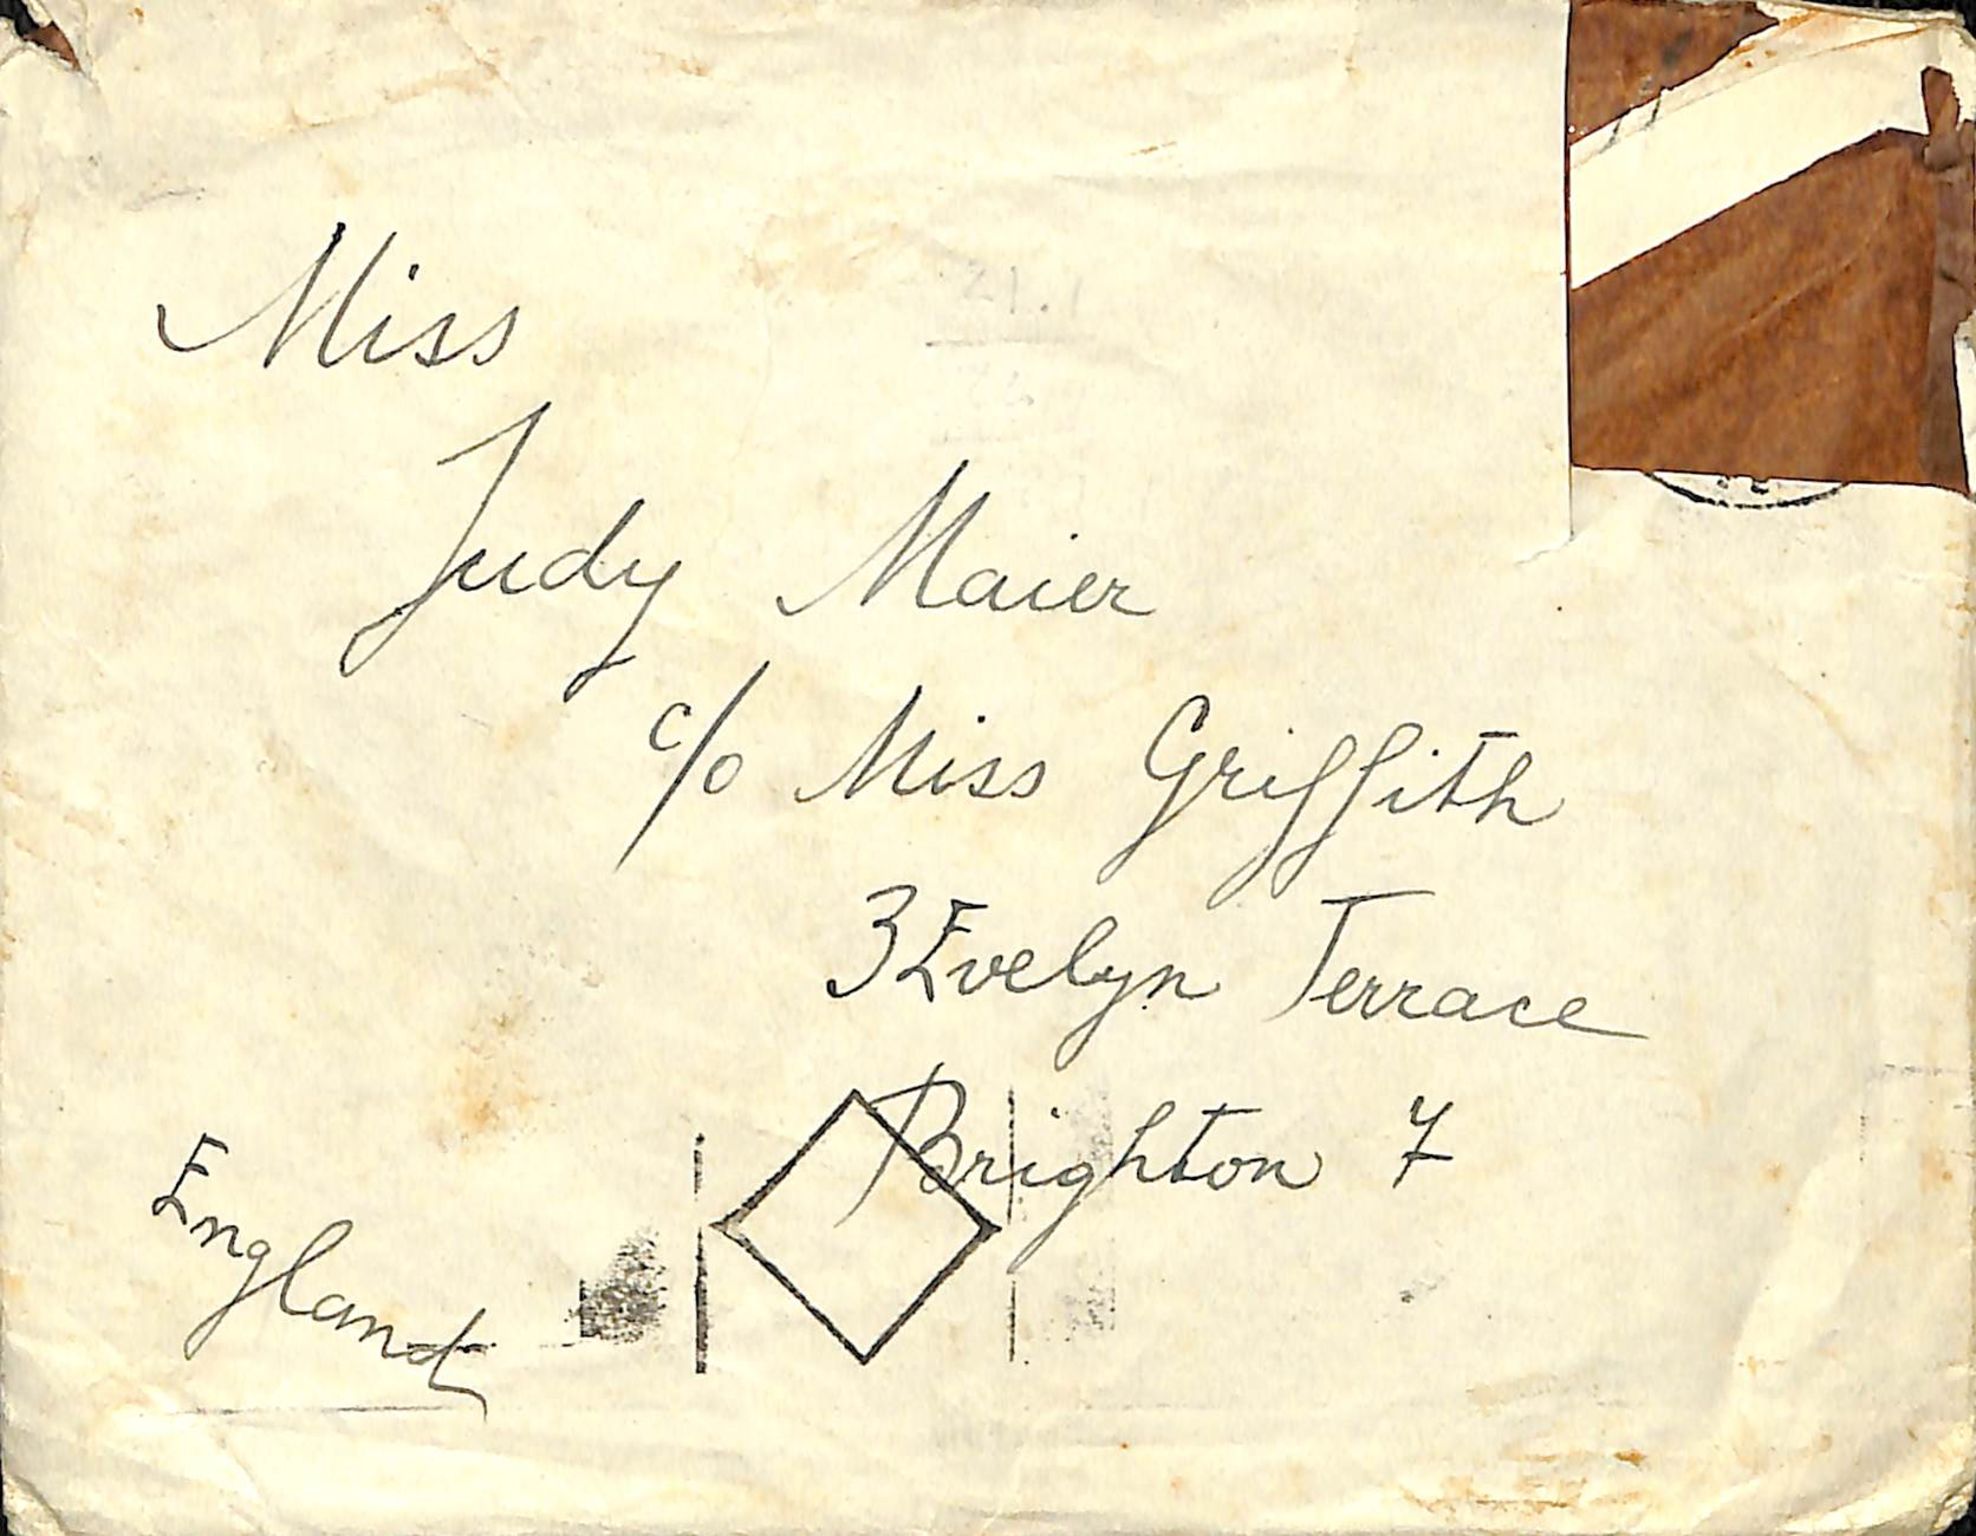 Miss
Judy Maier
c/o Miss Griffith
3 Evelyn Terrace
Brighton 7
England